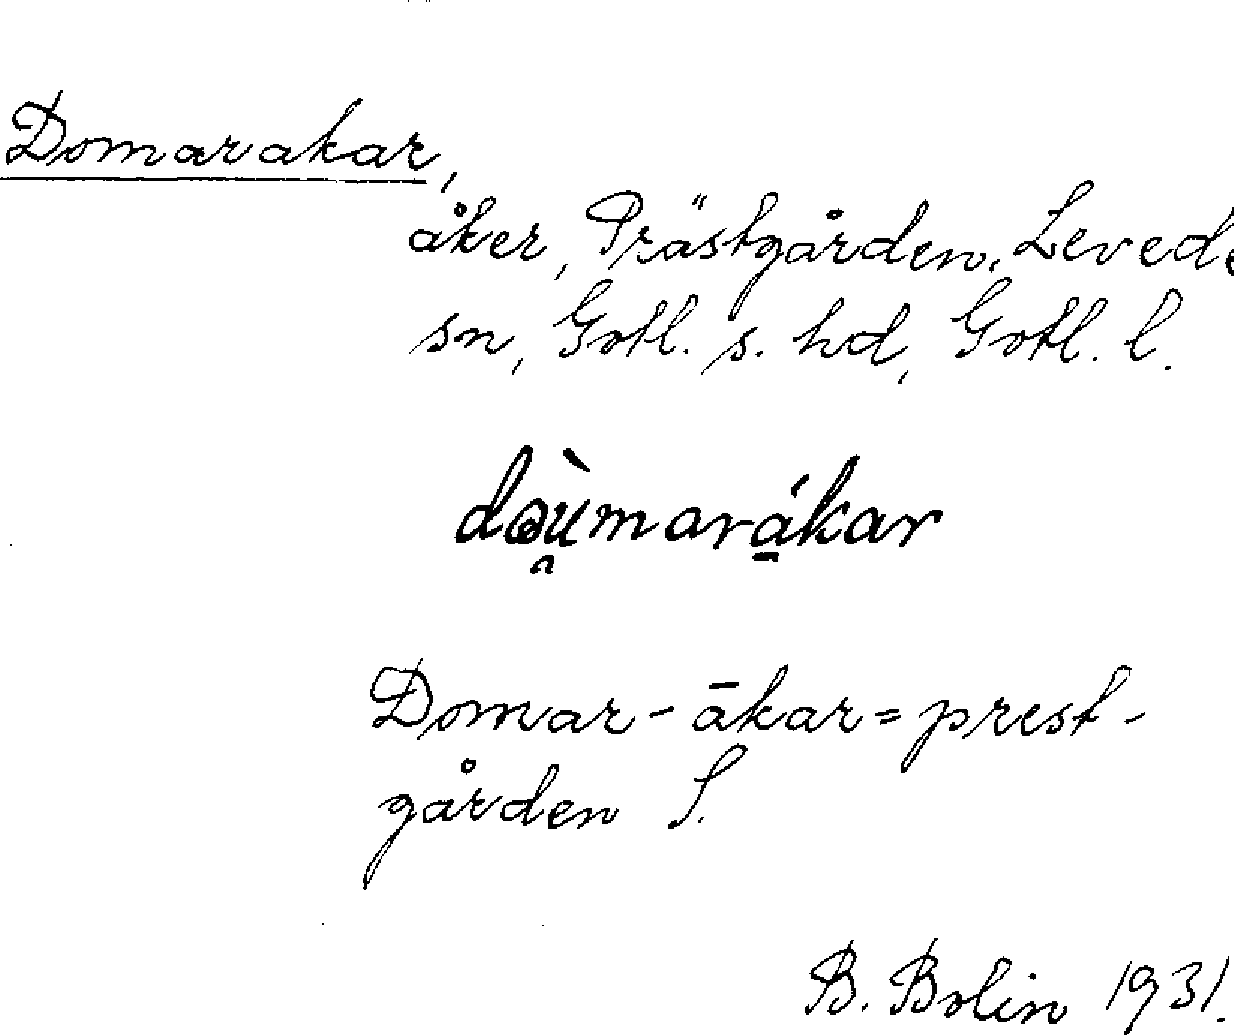 Domarakar,
åker, Prästgården, Levede
sn, Gotl. s. hd, Gotl. l.
dɷù̯mará̱kar
Domar-ākar = prest-
gården S.
B. Bolin 1931.